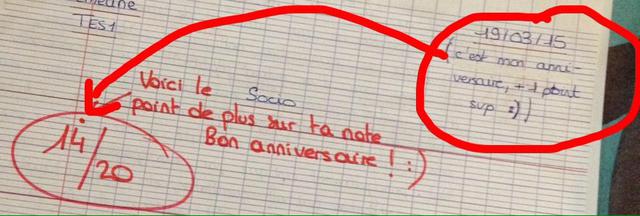 TES1
19/03/15
(c'est mon anni-
versaire, + 1 point
sup :) )
Voici le
Socio
point de plus sur ta note
Bon anniversaire ! :)
14/20